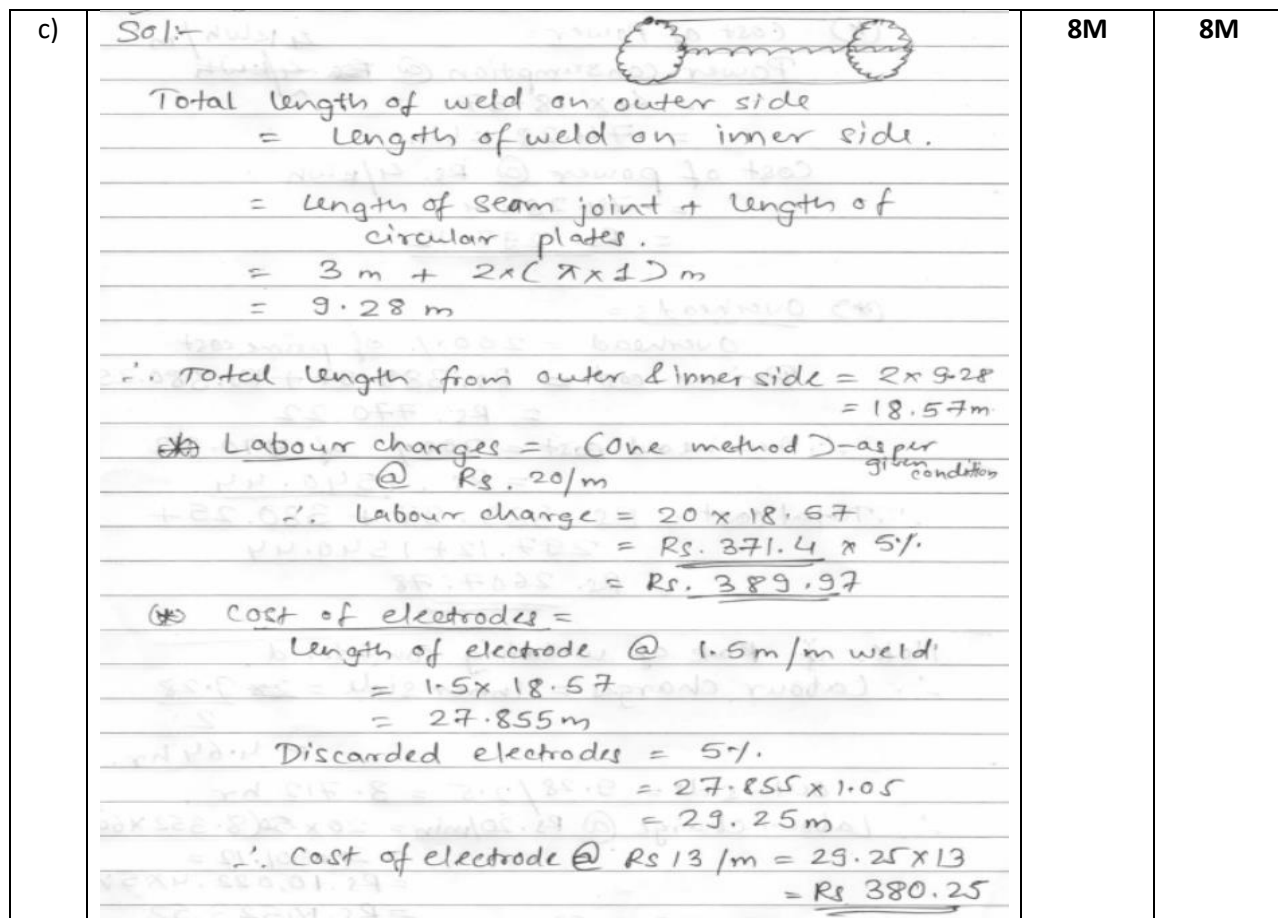 c)
8M
8M
Sol:-
Total length of weld on outer side
= Length of weld on inner side.
= Length of seam joint + Length of
circular plates.
= 3 m + 2×(π×1) m
= 9.28 m
∴ Total length from outer & inner side = 2×9.28
= 18.57m
Labour charges = (One method) - as per
given condition
@ Rs. 20/m
∴ Labour charge = 20 × 18.57
= Rs. 371.4 × 5%
= Rs. 389.97
(*) Cost of electrodes =
Length of electrode @ 1.5m/m weld
= 1.5 × 18.57
= 27.855m
Discarded electrodes = 5%
= 27.855 × 1.05
= 29.25m
∴ Cost of electrode @ Rs 13 /m = 29.25×13
= Rs 380.25